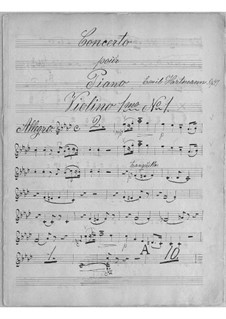 Concerto
Piano Emil Hartmann
Violino 1mo No. 1
Allegro 2
Tranquillo
1. A 10